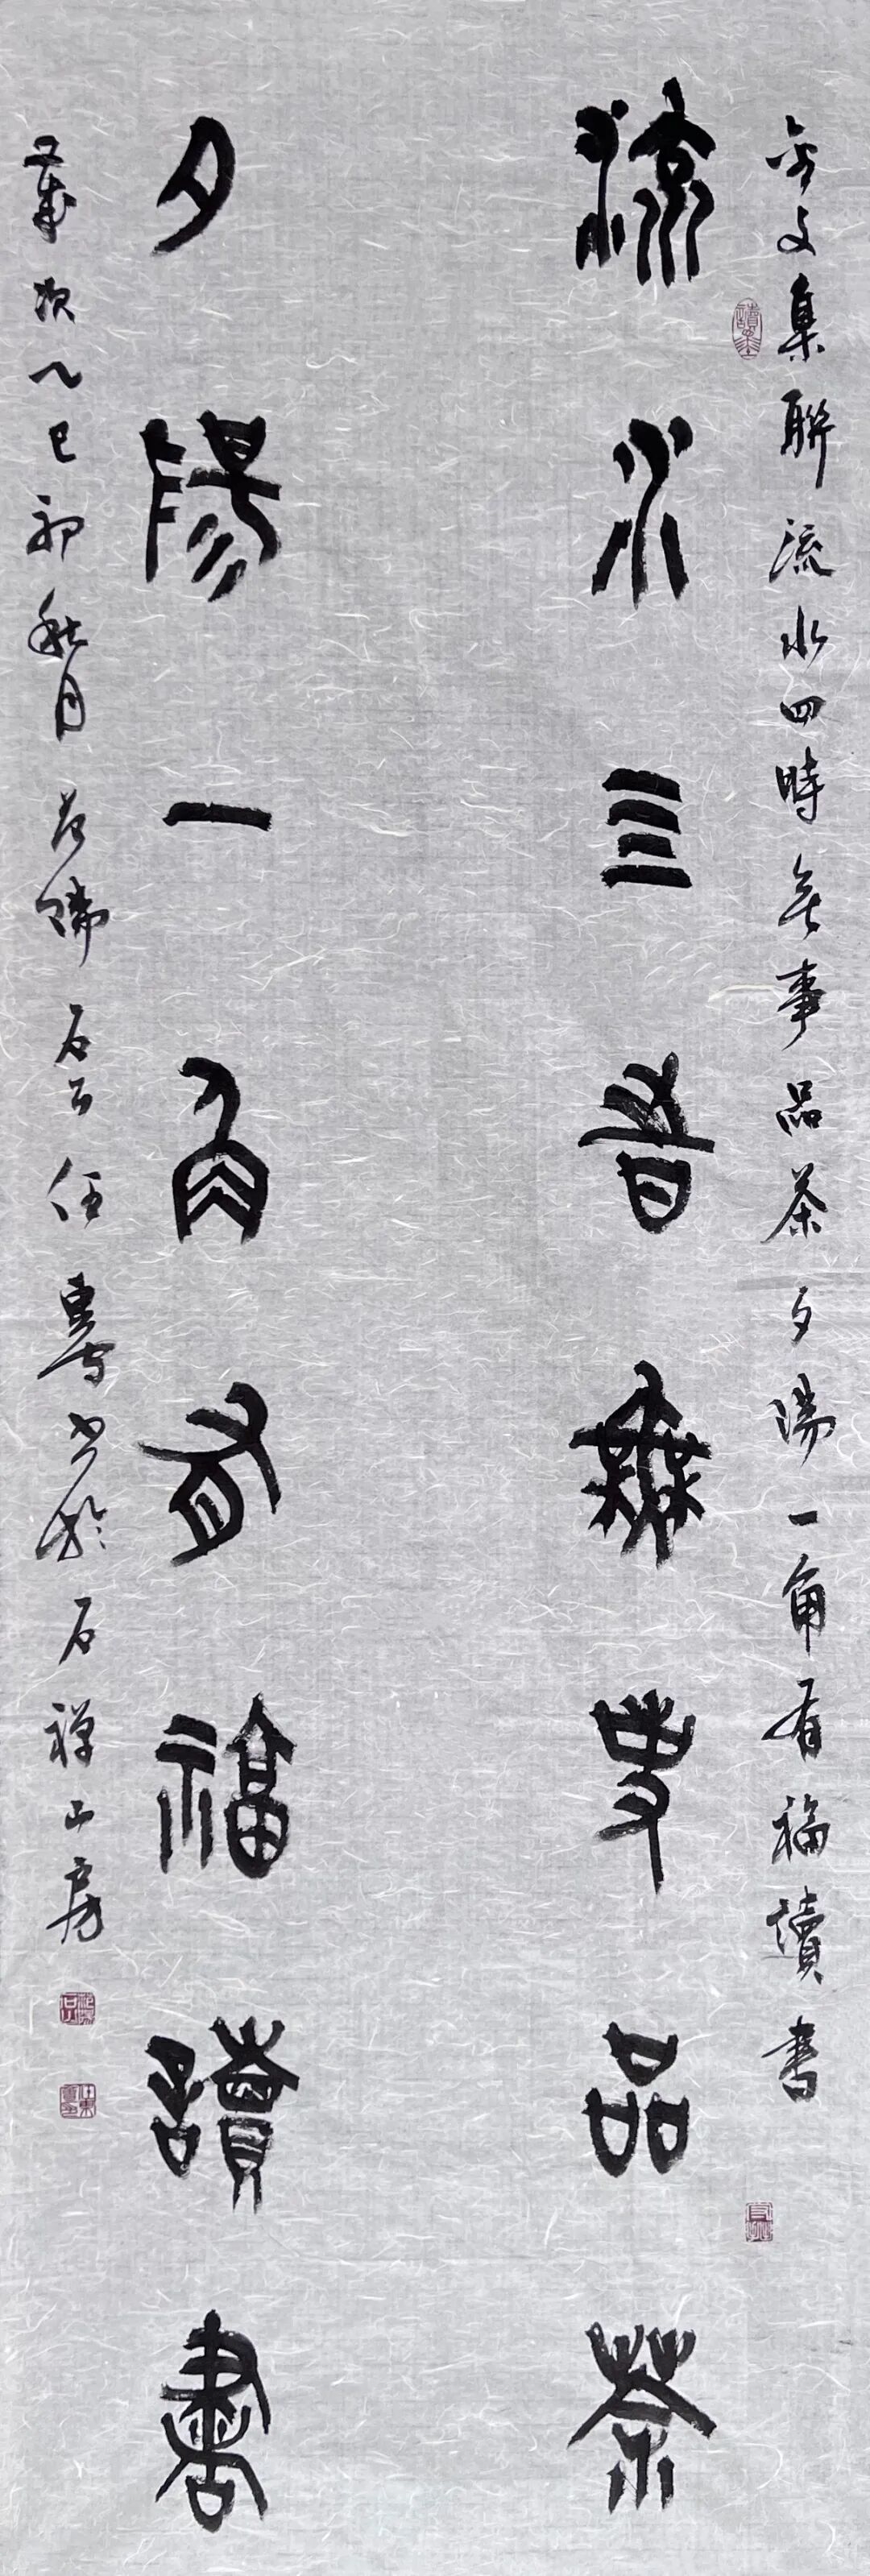 金文集聯流水四時無事品茶夕陽一角有福讀書
流水三時無事品茶
夕陽一角有福讀書
歲次乙巳初秋月
石禪山房